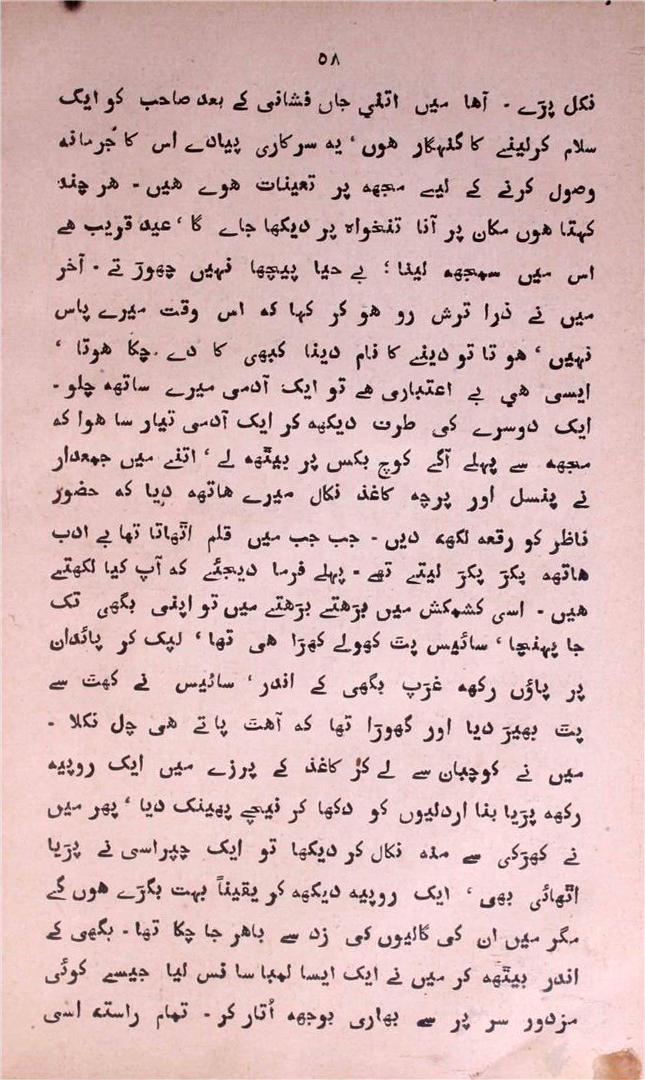 ٥٨
نکل پڑے ۔ آھا میں اتنی جاں فشانی کے بعد صاحب کو ایک
سلام کرلینے کا گنہگار ھوں ، یہ سرکاری پیادے اس کا جُرمانہ
وصول کرنے کے لیے مجھہ پر تعینات ھوے ھیں ۔ ھر چند
کہتا ھوں مکان پر آنا تنخواہ پر دیکھا جاے گا ، عید قریب ھے
اس میں سمجھہ لینا ؛ بے حیا پیچھا نہیں چھوڑ تے ۔ آخر
میں نے ذرا ترش رو ھو کر کہا کہ اس وقت میرے پاس
نہیں ، ھو تا تو دینے کا نام دینا کبھی کا دے چکا ھوتا ،
ایسی ھی بے اعتباری ھے تو ایک آدمی میرے ساتھہ چلو ۔
ایک دوسرے کی طرف دیکھہ کر ایک آدمی تیار سا ھوا کہ
مجھہ سے پہلے آگے کوچ بکس پر بیٹھہ لے ، اتنے میں جمعدار
نے پنسل اور پرچہ کاغذ نکال میرے ھاتھہ دیا کہ حضور
ناظر کو رقعہ لکھہ دیں ۔ جب جب میں قلم اٹھاتا تھا بے ادب
ھاتھہ پکڑ پکڑ لیتے تھے ۔ پہلے فرما دیجئے کہ آپ کیا لکھتے
ھیں ۔ اسی کشمکش میں بڑھتے بڑھتے میں تو اپنی بگھی تک
جا پہنچا ، سائیس پٹ کھولے کھڑا ھی تھا ، لپک کر پائدان
پر پاؤں رکھہ غڑپ بگھی کے اندر ، سائیس نے کھٹ سے
پٹ بھیڑ دیا اور گھوڑا تھا کہ آھٹ پاتے ھی چل نکلا ۔
میں نے کوچبان سے لے کر کاغذ کے پرزے میں ایک روپیہ
رکھہ پڑیا بنا اردلیوں کو دکھا کر نیچے پھینک دیا ، پھر میں
نے کھڑکی سے منہ نکال کر دیکھا تو ایک چپراسی نے پڑیا
اٹھائی بھی ، ایک روپیہ دیکھہ کر یقیناً بہت بگڑے ھوں گے
مگر میں ان کی گالیوں کی زد سے باھر جا چکا تھا ۔ بگھی کے
اندر بیٹھہ کر میں نے ایک ایسا لمبا سا نس لیا جیسے کوئی
مزدور سر پر سے بھاری بوجھہ اُتار کر ۔ تمام راستہ اسی